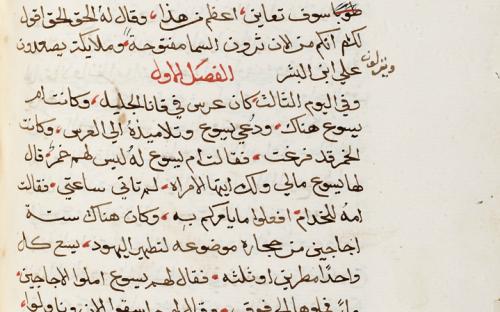 سوف تعاين، اعظم من هذا، وقال له الحق الحق اقول
لكم انكم من الان ترون السما مفتوحة وملايكت يصعدون
وينزلون
علي ابن البشر الفصل الاول
وفي اليوم الثالث كان عرس في قانا الجليل، وكانت ام
يسوع هناك، ودعي يسوع وتلاميذه الي العرس، وكانت
الخمر قد فرغت، فقالت ام يسوع له ليس لهم خمر، قال
لها يسوع مالي ولك ايتها الامراه، لم تاتي ساعتي، فقالت
امه للخدام افعلوا ما يامركم به، وكان هناك ستة
اجاجين من حجاره موضوعه لتطهير اليهود، يسع كل
واحدا مطرين او ثلثه، فقال لهم يسوع املوا الاجاجين
فملوها الي فوق، وقال لهم اسقوا الان وناولوا